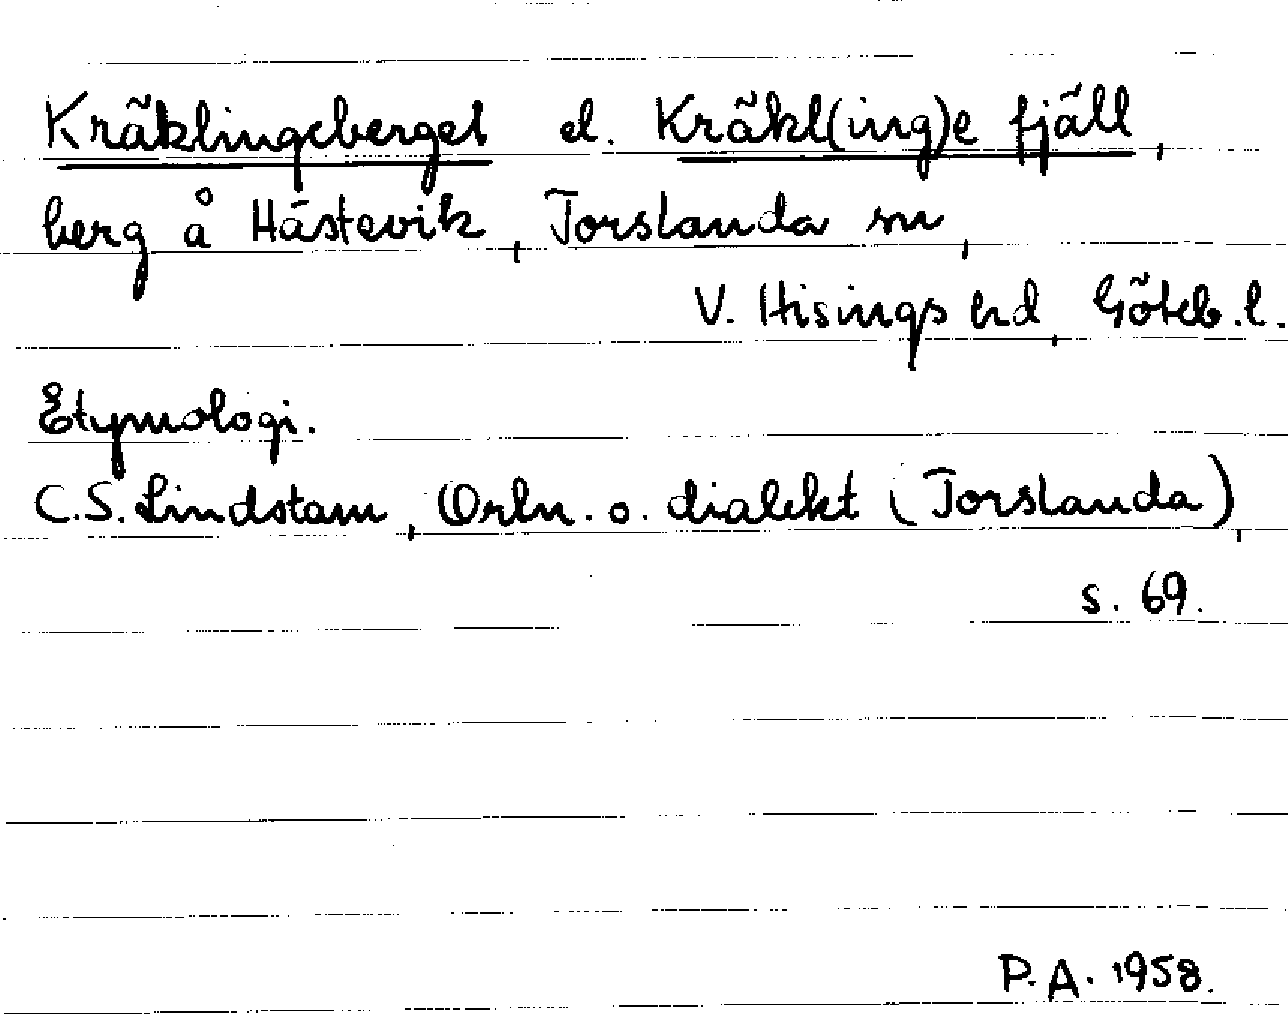 Kräklingeberget el. Kräkl(ing)e fjäll,
berg å Hästevik, Torslanda sn,
V. Hisings hd, Göteb. l.
Etymologi.
C.S. Lindstam, Ortn. o. dialekt (Torslanda),
s. 69.
P.A. 1958.